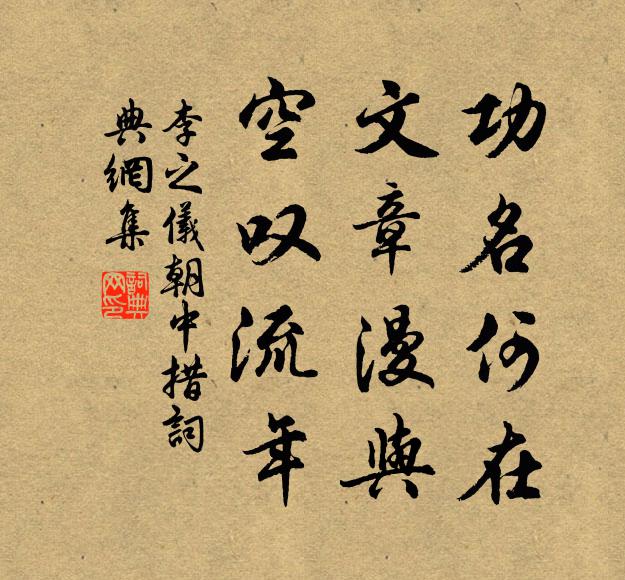 功名何在
文章漫與
空叹流年
李之儀朝中措詞
典網集
詞典
网印